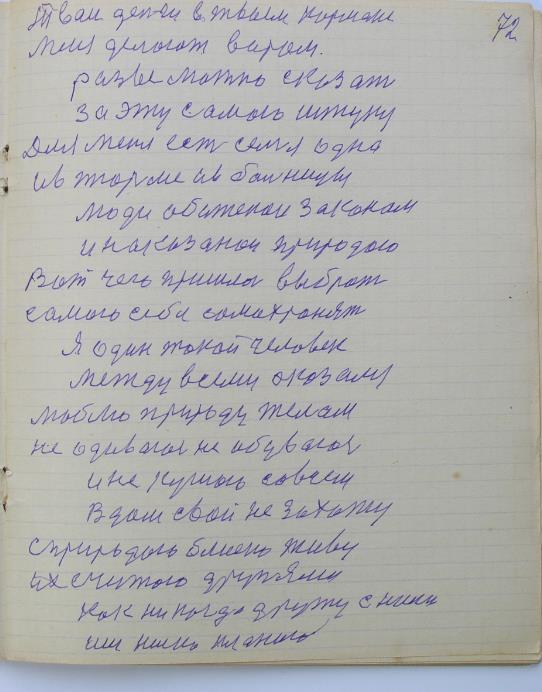 72
Тваи денги в твоем кормане
меня делоют варом.
разве можно сказат
за эту самою штуку
Для меня ест семя одна
и в тюрме и в болницы
люди обиженои законам
и наказанои природою
Вот чего пришлос выброт
самого себя самохронят
Я один такой человек
между всеми оказался
люблю природу телам
не одиваюс не обуваюс
и не кушою совсем
В дом свой не захожу
с природою близко живу
их считою друзями
как никогда дружу с ними
им низко кланаюс